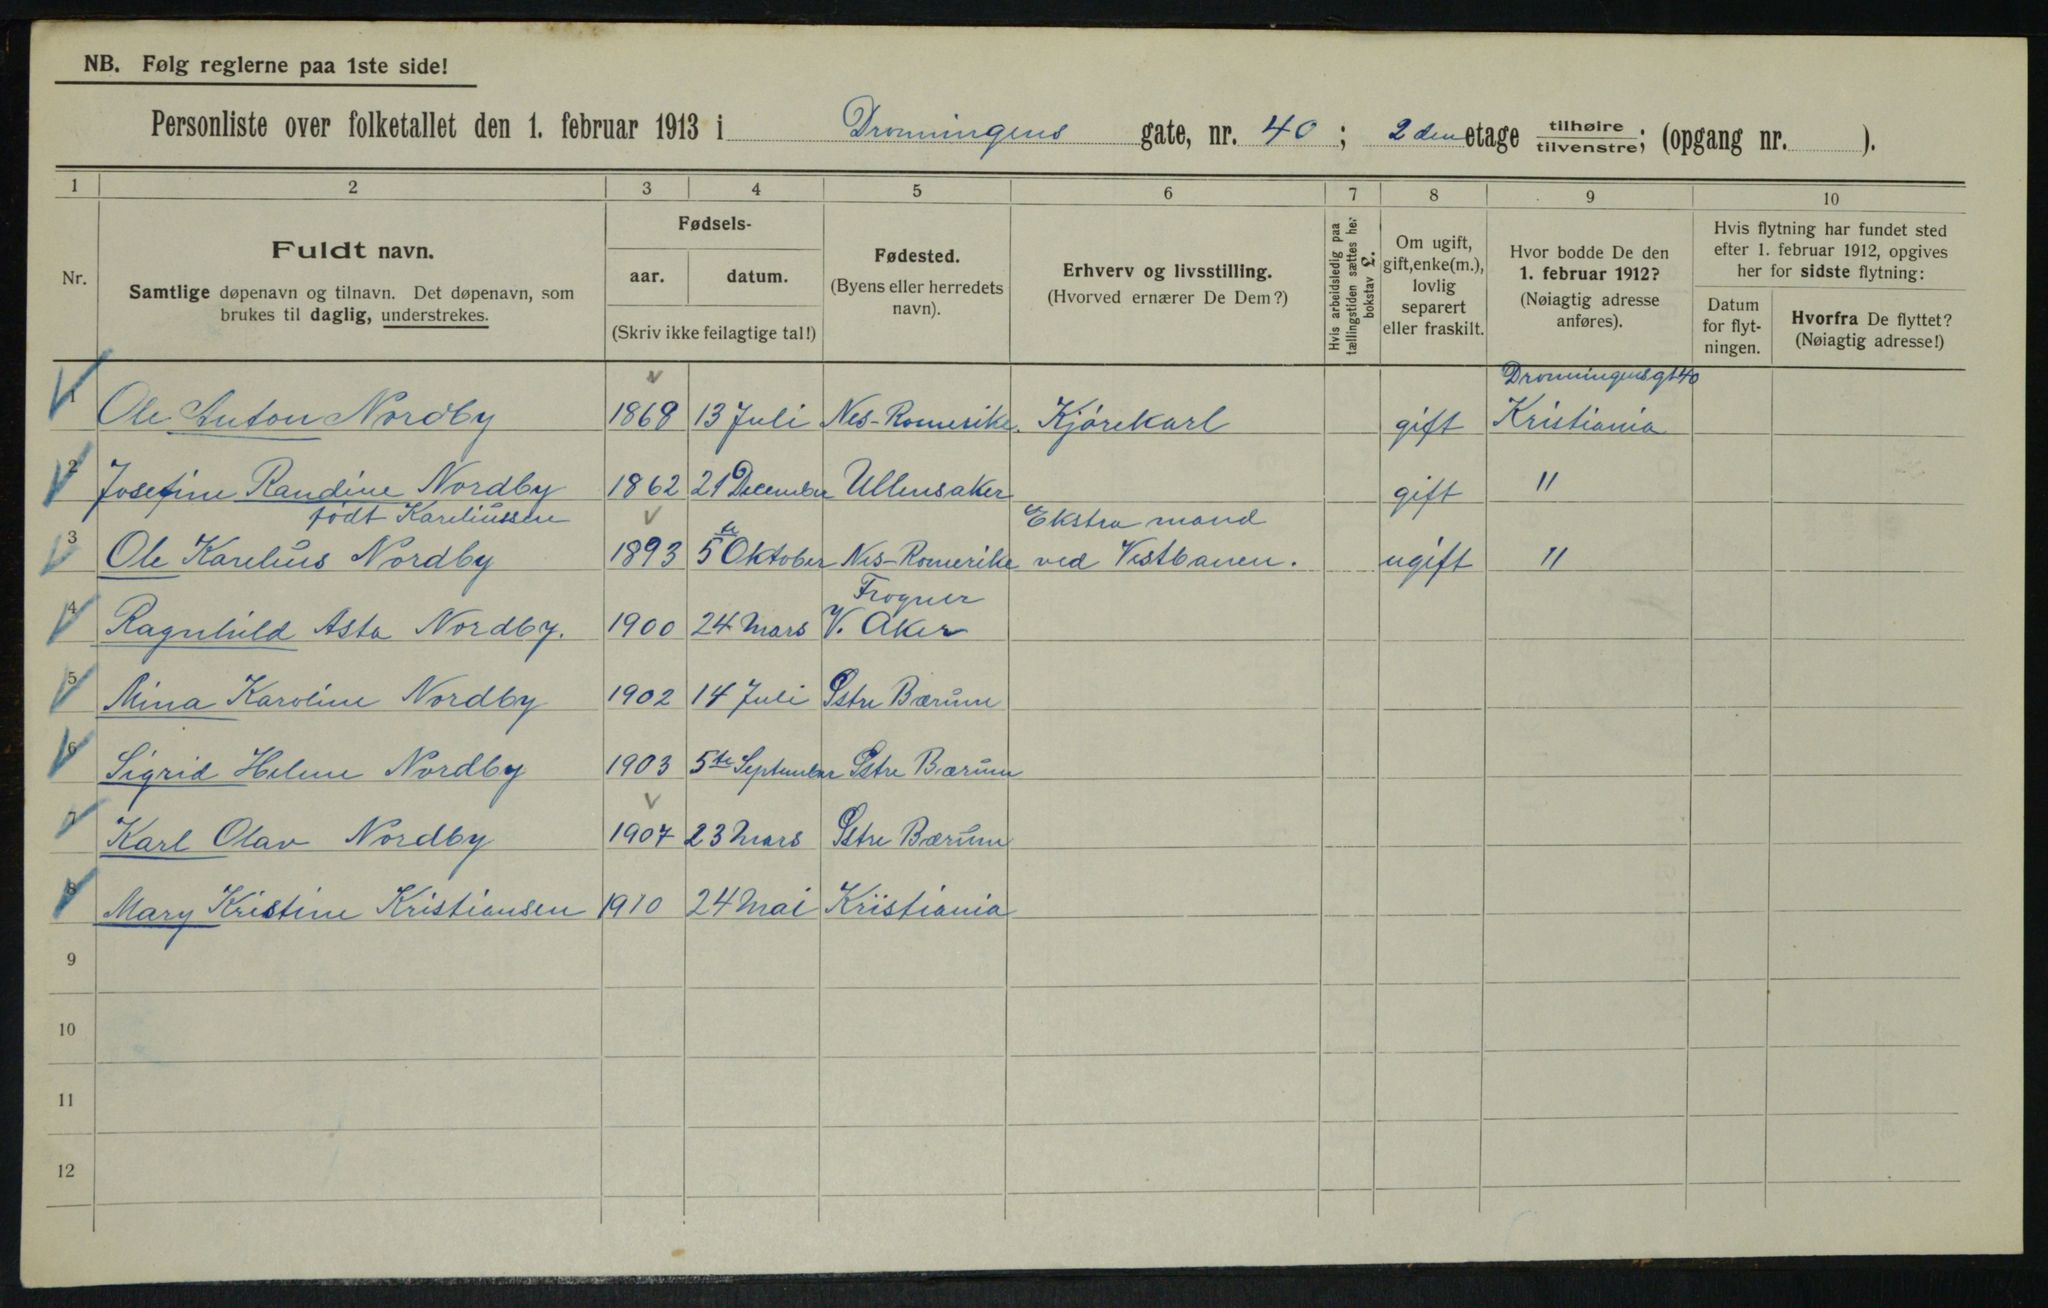 NB. Følg reglerne paa 1ste side!
Personliste over folketallet den 1. februar 1913 i Dronningens gate, nr. 40; 2 den etage tilhøire/tilvenstre; (opgang nr. ).
1 2 3 4 5 6 7 8 9 10
Nr.
Fuldt navn.
Samtlige døpenavn og tilnavn. Det døpenavn, som
brukes til daglig, understrekes.
Fødsels-
aar. datum.
(Skriv ikke feilagtige tal!)
Fødested.
(Byens eller herredets
navn).
Erhverv og livsstilling.
(Hvorved ernærer De Dem?)
Hvis arbeidsledig paa
tællingstiden sættes her
bokstav £.
Om ugift,
gift, enke(m.),
lovlig
separert
eller fraskilt.
Hvor bodde De den
1. februar 1912?
(Nøiagtig adresse
anføres).
Hvis flytning har fundet sted
efter 1. februar 1912, opgives
her for sidste flytning:
Datum
for flyt-
ningen.
Hvorfra De flyttet?
(Nøiagtig adresse!)
Dronningensgt 40
1 Ole Anton Nordby 1868 13 Juli Nes-Romerike. Kjörekarl gift Kristiania
2 Josefine Randine Nordby 1862 21 December Ullensaker gift "
födt Kareliussen
Ekstra mand
3 Ole Karelius Nordby 1893 5te Oktober Nes-Romerike ved Vestbanen. ugift "
Frogner
4 Ragnhild Asta Nordby. 1900 24 Mars V. Aker
5 Mina Karoline Nordby 1902 14 Juli Östre Bærum
6 Sigrid Helene Nordby 1903 5te September Östre Bærum
7 Karl Olav Nordby 1907 23 Mars Östre Bærum
8 Mary Kristine Kristiansen 1910 24 Mai Kristiania
9
10
11
12